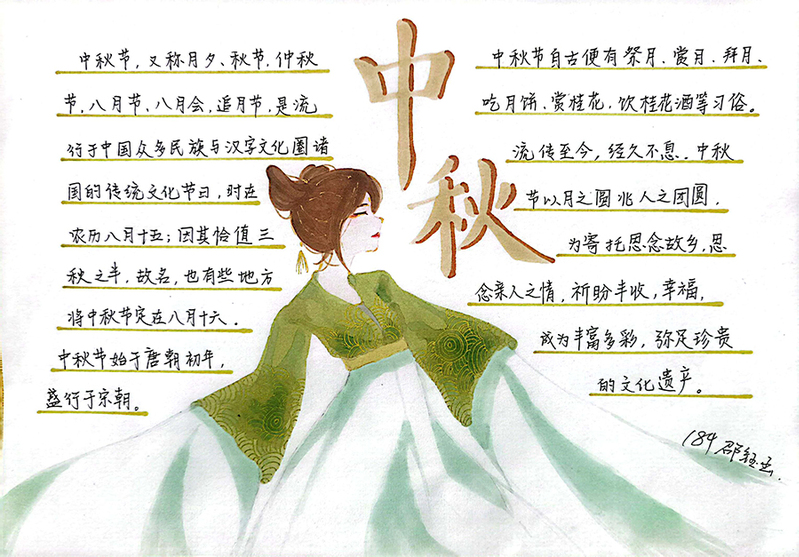 中秋
中秋节,又称月夕、秋节,仲秋
节,八月节、八月会,追月节,是流
行于中国众多民族与汉字文化圈诸
国的传统文化节日,时在
农历八月十五;因其恰值三
秋之半,故名,也有些地方
将中秋节定在八月十六.
中秋节始于唐朝初年,
盛行于宋朝。
中秋节自古便有祭月、赏月、拜月、
吃月饼、赏桂花,饮桂花酒等习俗。
流传至今,经久不息.中秋
节以月之圆兆人之团圆,
为寄托思念故乡,思
念亲人之情,祈盼丰收,幸福,
成为丰富多彩,弥足珍贵
的文化遗产。
184 邵钰